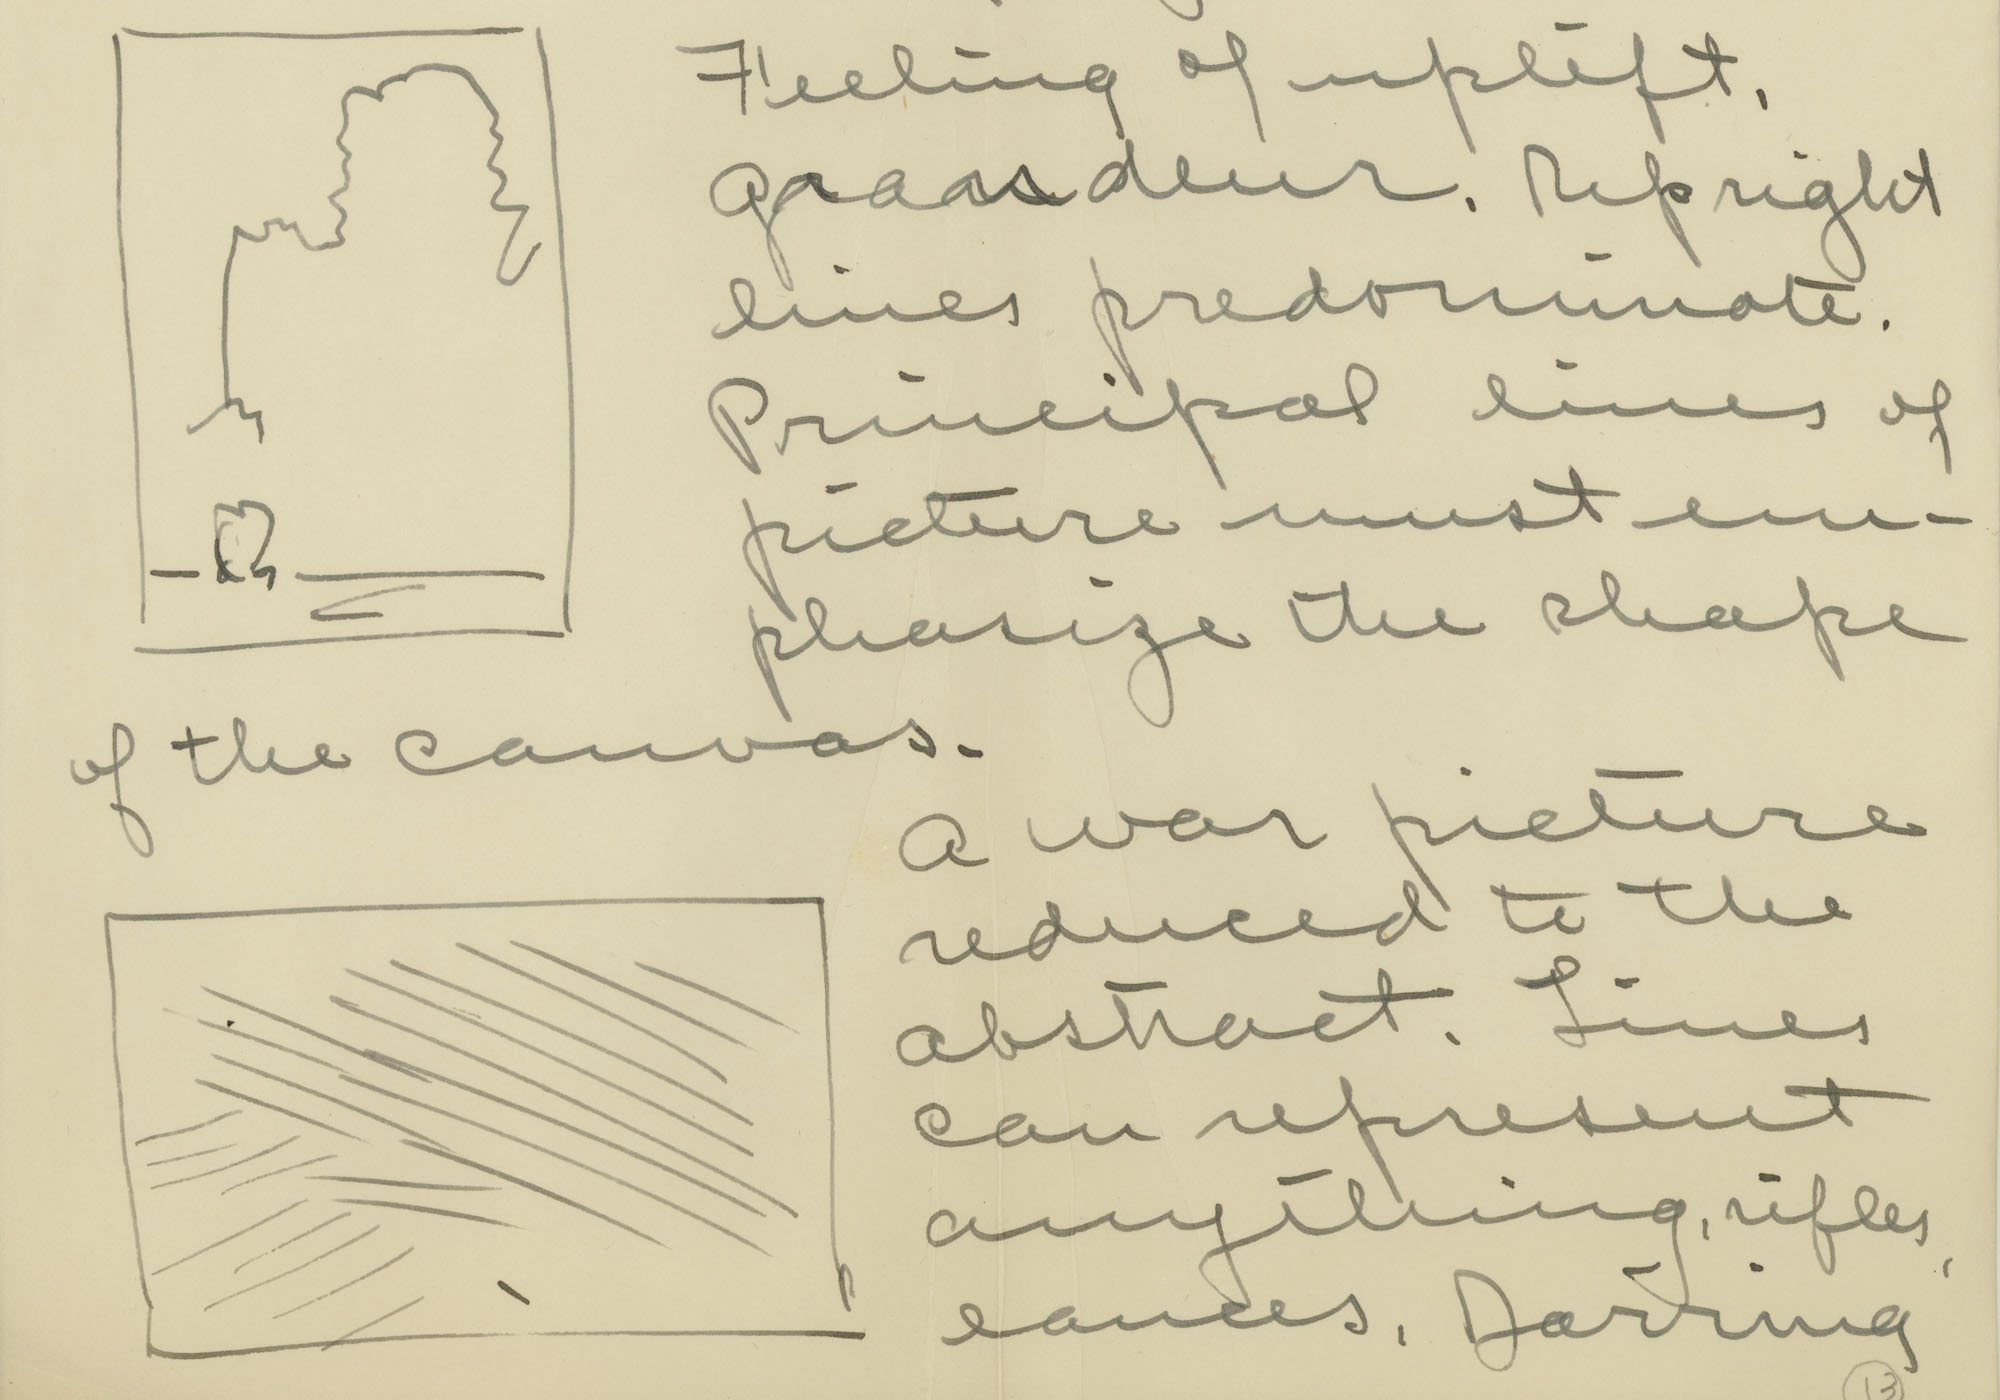 Feeling of uplift,
grandeur. Upright
lines predominate.
Principal lines of
picture must em-
phasize the shape
of the canvas.
A war picture
reduced to the
abstract. Lines
can represent
anything, rifles,
lances. Jarring
13